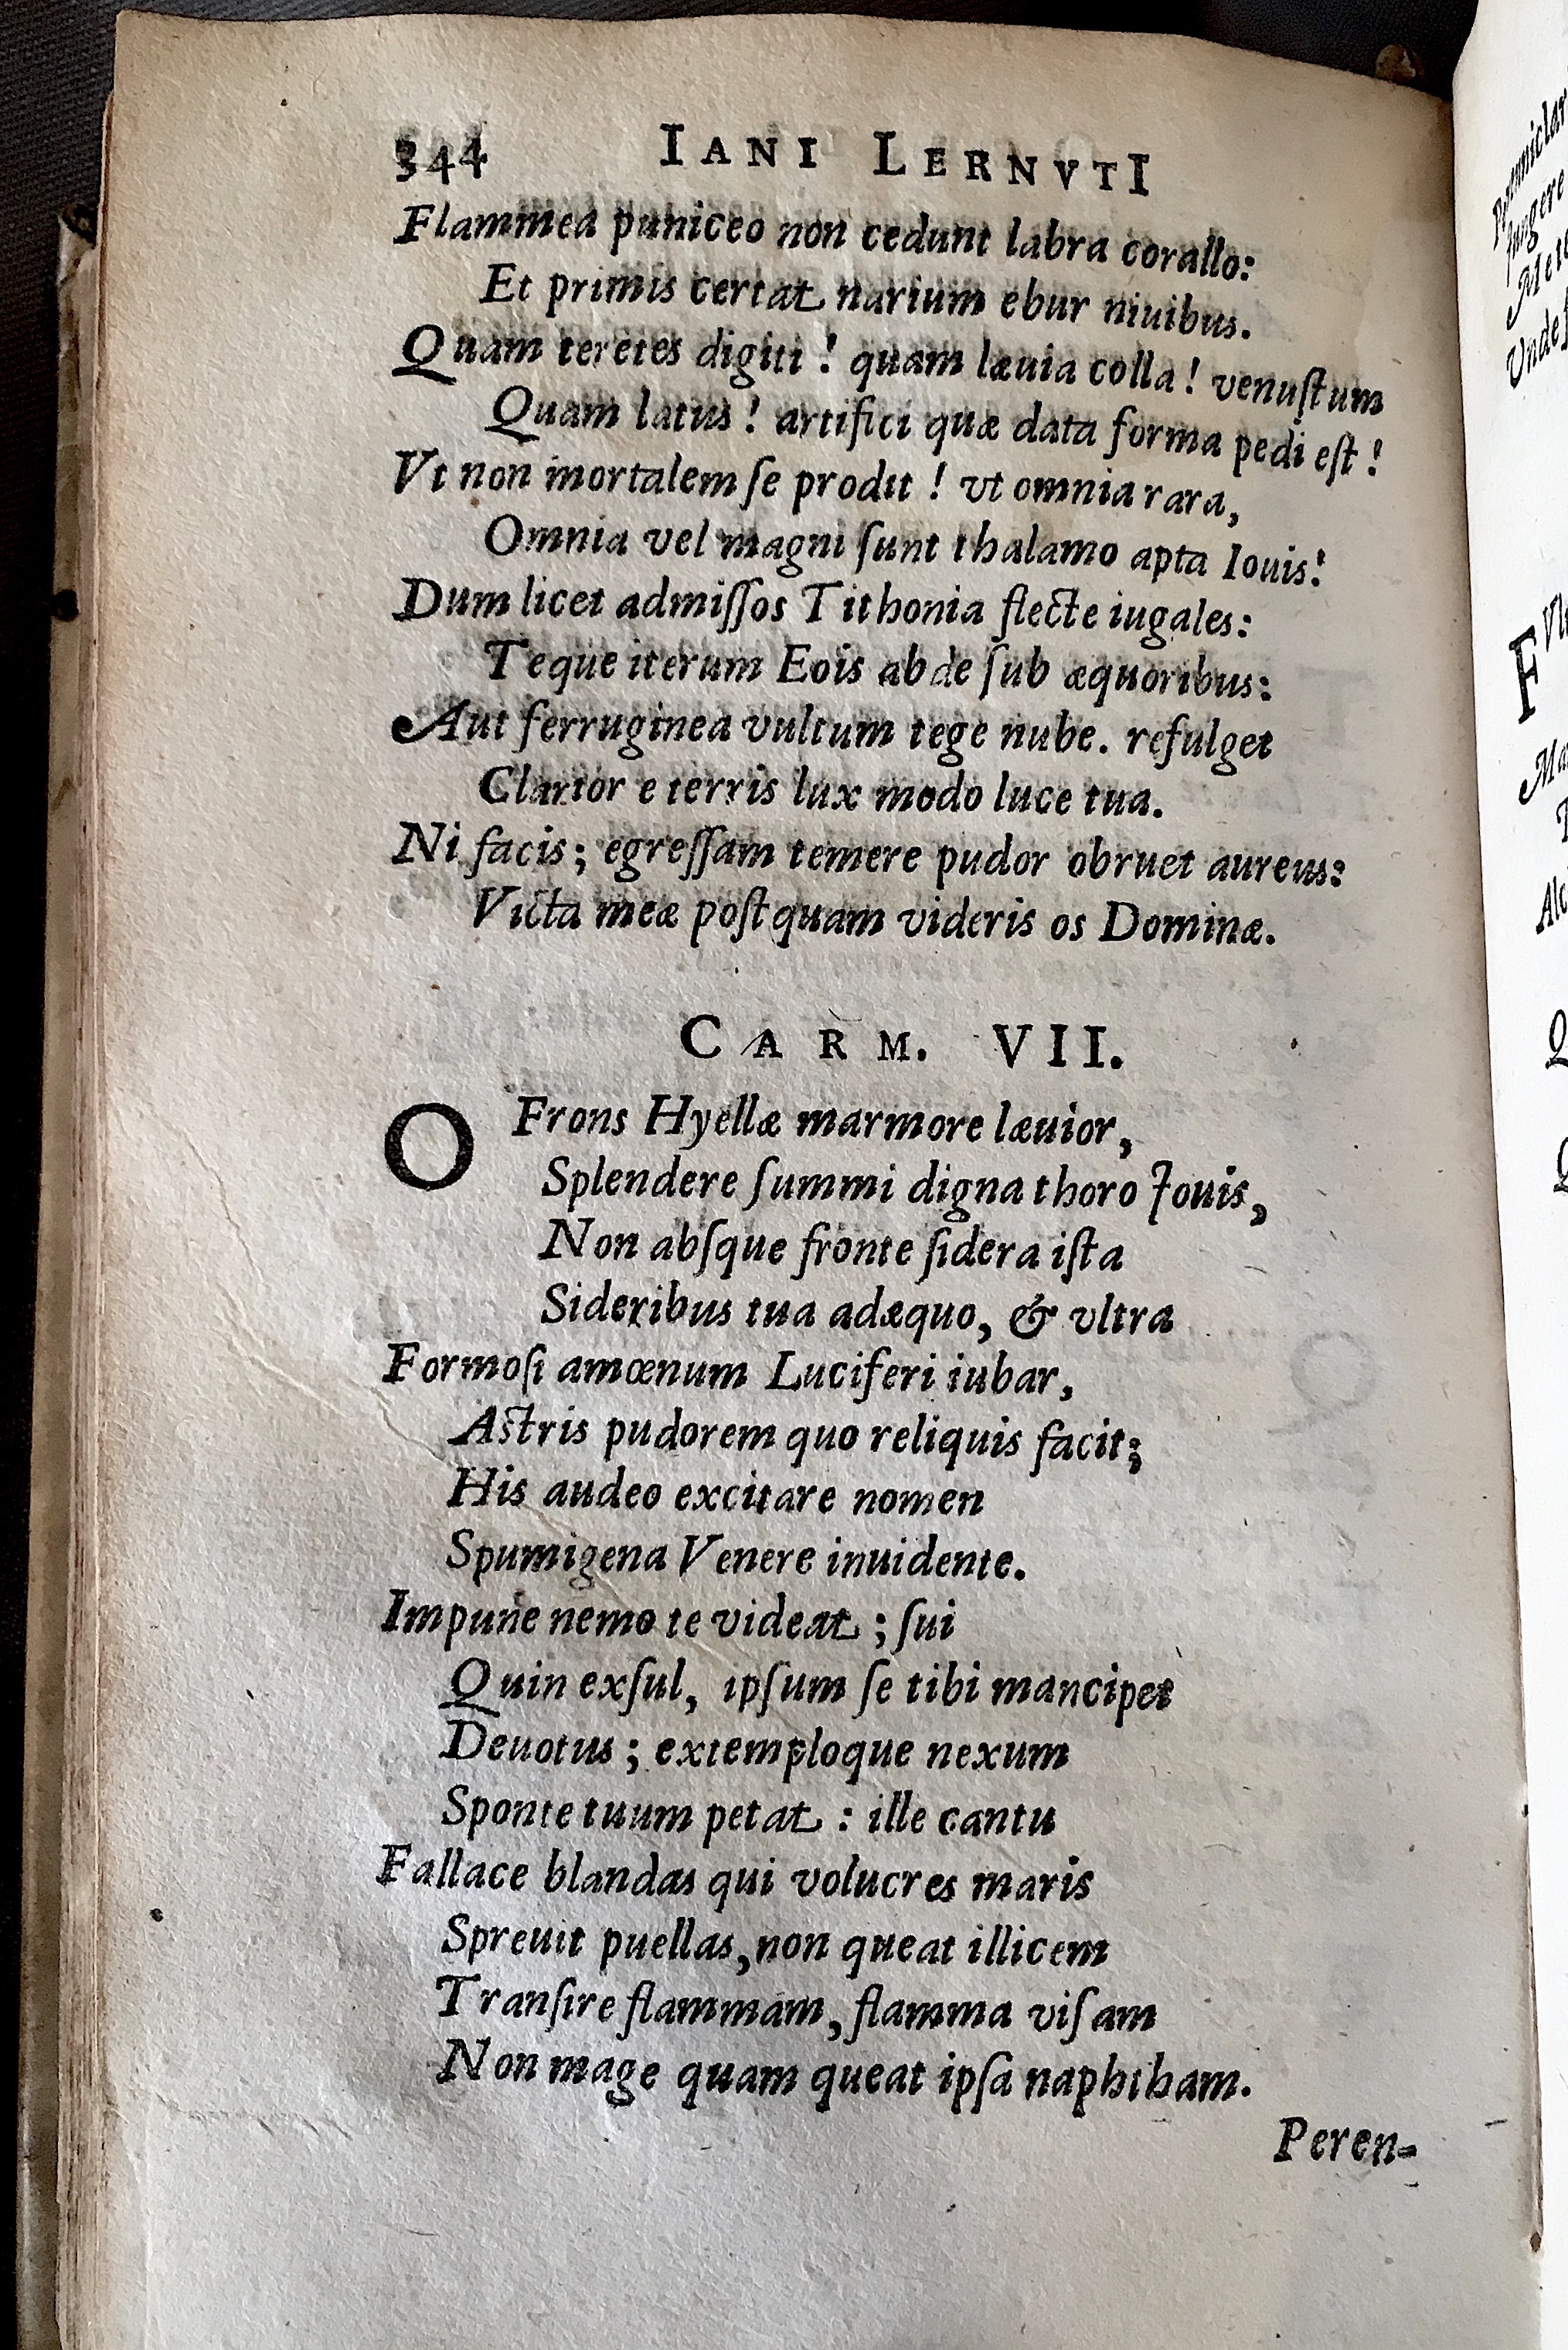 344 IANI LERNVTI
Flammea puniceo non cedunt labra corallo:
Et primis certat narium ebur niuibus.
Quam teretes digiti! quam læuia colla! venuſtum
Quam latus! artifici quæ data forma pedi eſt!
Vt non mortalem ſe prodit! vt omnia rara,
Omnia vel magni ſunt thalamo apta Iouis!
Dum licet admiſſos Tithonia flecte iugales:
Teque iterum Eois abde ſub æquoribus:
Aut ferruginea vultum tege nube. refulget
Clarior e terris lux modo luce tua.
Ni facis; egreſſam temere pudor obruet aureus:
Victa meæ poſtquam videris os Dominæ.
CARM. VII.
O Frons Hyellæ marmore læuior,
Splendere ſummi digna thoro Iouis,
Non abſque fronte ſidera iſta
Sideribus tua adæquo, & vltra
Formoſi amœnum Luciferi iubar,
Aſtris pudorem quo reliquis facit;
His audeo excitare nomen
Spumigena Venere inuidente.
Impune nemo te videat; ſui
Quin exſul, ipſum ſe tibi mancipet
Deuotus; extemploque nexum
Sponte tuum petat: ille cantu
Fallace blandas qui volucres maris
Spreuit puellas, non queat illicem
Tranſire flammam, flamma viſam
Non mage quam queat ipſa naphtham.
Peren-